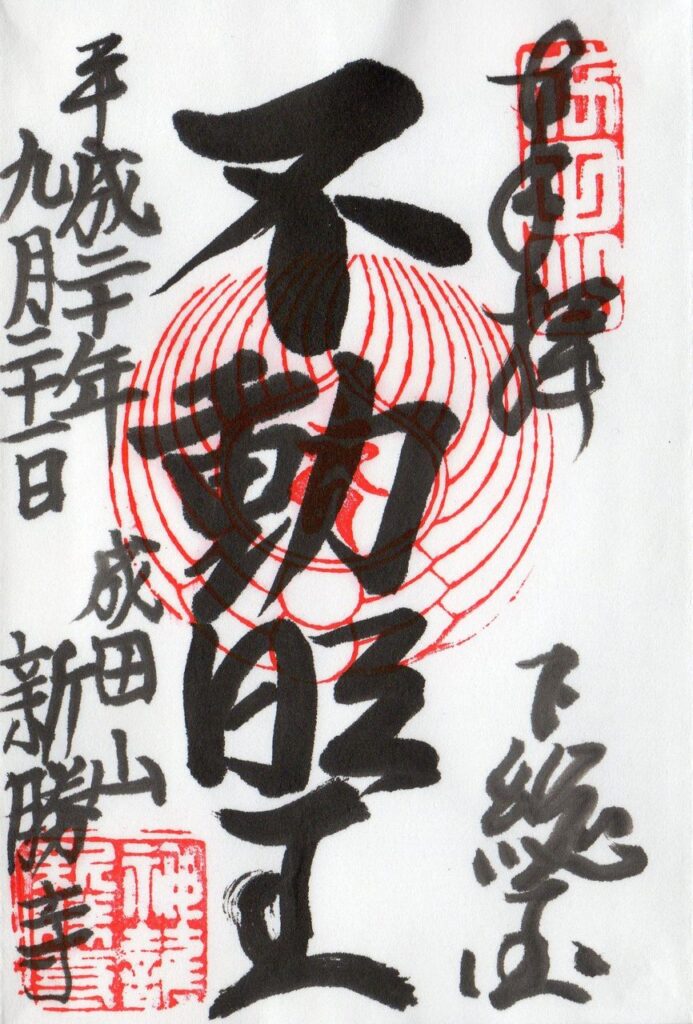 奉拝
下総国
不動明王
平成二十年
九月二十一日
成田山
新勝寺